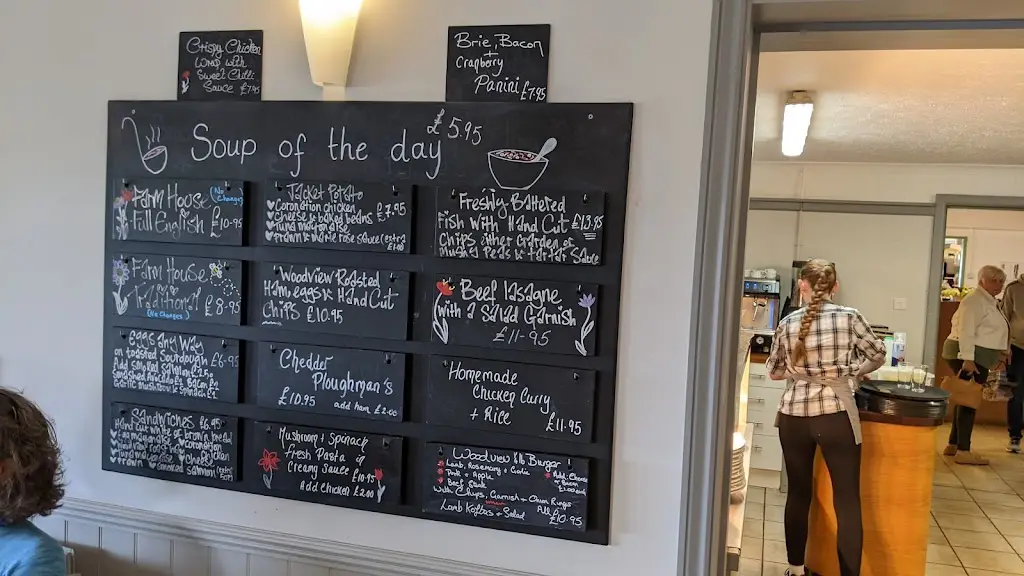 Crispy Chicken
Wrap with
Sweet Chilli
Sauce £7.95
Brie, Bacon
+
Cranbery
Panini £7.95
Soup of the day £5.95
Farm House (No Changes)
Full English £10.95
Jacket Potato
Coronation chicken £7.95
cheese & baked beans
tuna mayonaise
Prawn & marie rose sauce (extra
Freshly Battered
Fish with Hand Cut £13.95
Chips either Garden or
Mushy Peas & Tartar Sauce
Farm House
Traditional £8.95
(No Changes)
Woodview Roasted
Ham, eggs & Hand Cut
Chips £10.95
Beef lasagne
with a Salad Garnish
£11-95
Eggs any way £6.95
on toasted Sourdough
Chedder
Ploughman's
£10.95 add ham £2.00
Homemade
Chicken Curry
+ Rice £11.95
Sandwiches £6.95
Mushroom + Spinach
Fresh Pasta
Creamy Sauce £10.95
Add Chicken £2.00
Woodview 1/2 lb Burger
Lamb, Rosemary + Garlic
Pork + Apple
Beef Steak
With Chips, Garnish + Onion Rings
Lamb Koftas + Salad £10.95